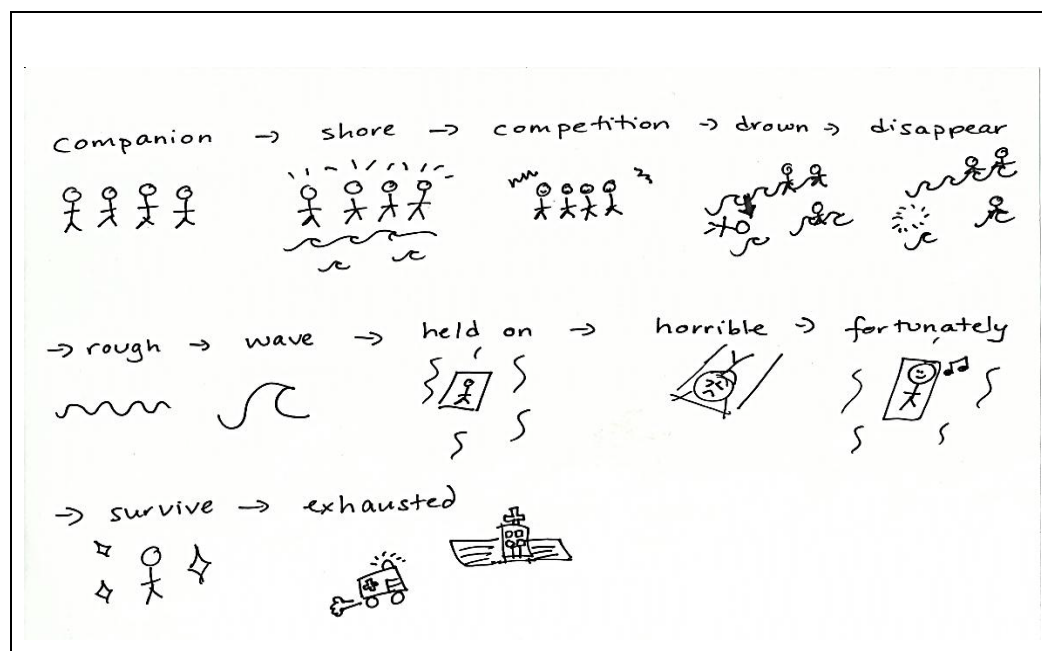 companion → shore → competition → drown → disappear
→ rough → wave → held on → horrible → fortunately
→ survive → exhausted